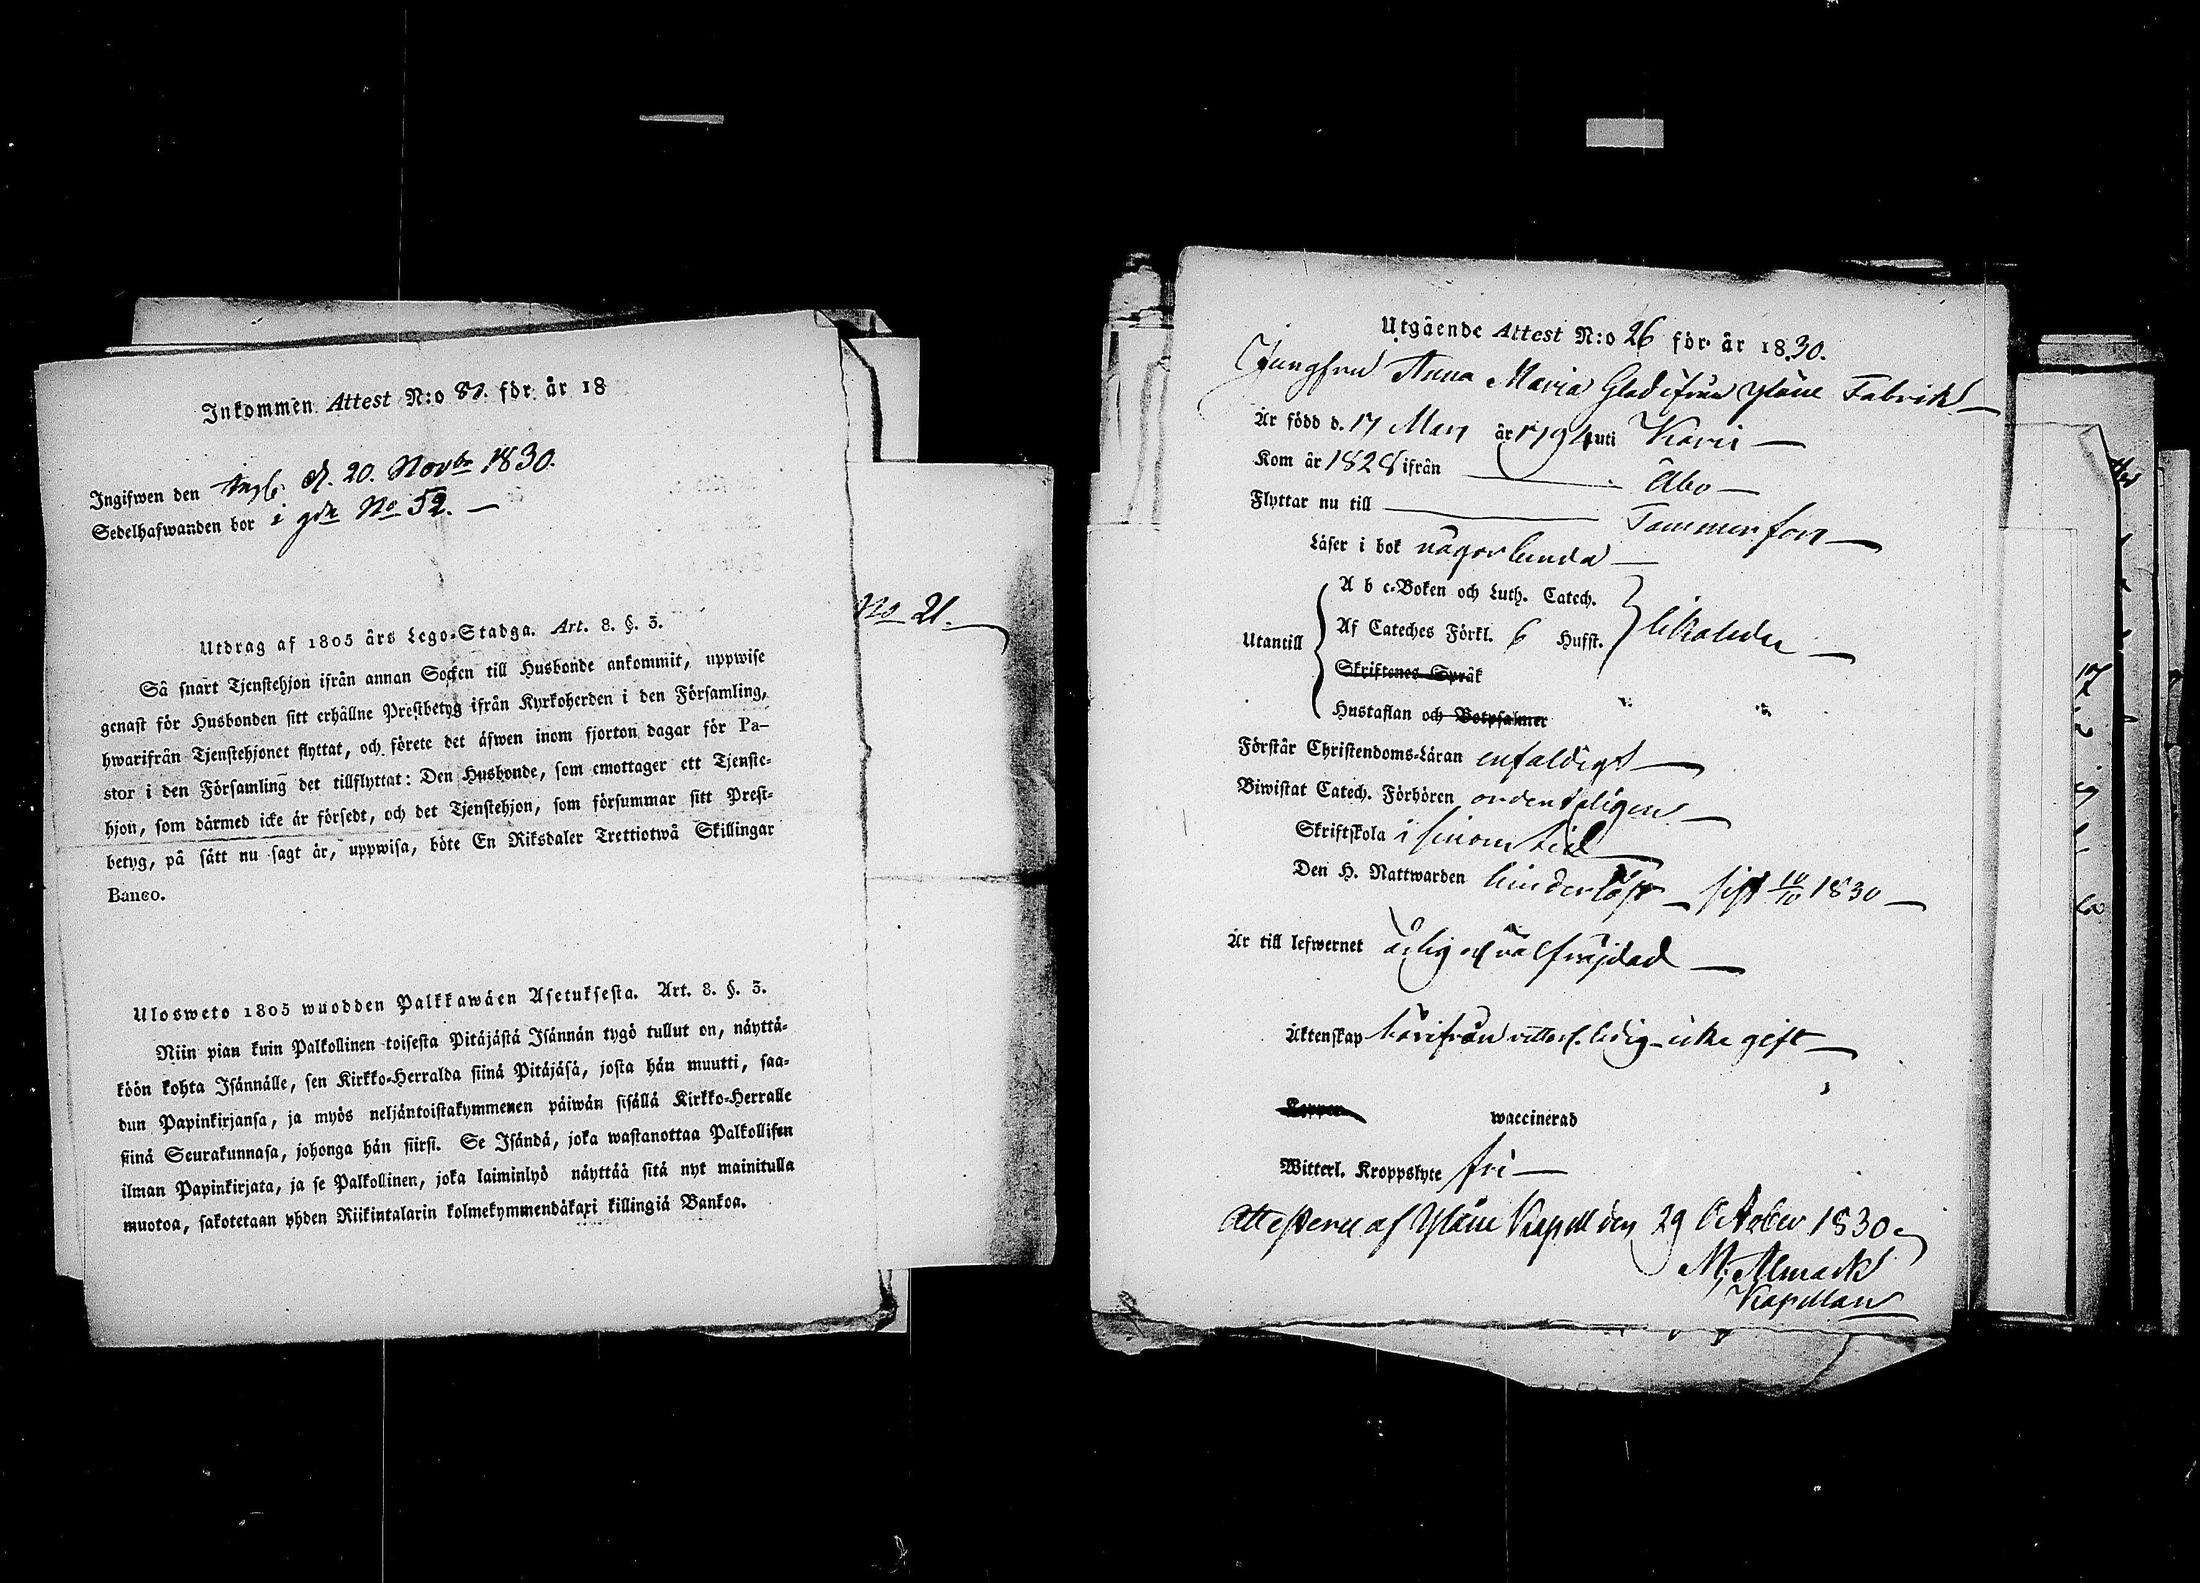 Inkommen Attest N:o 81. för år 18
Ingifwen den d. 20. Novbr 1830.
Sedelhafwanden bor i gdn No 52.
Utdrag af 1805 års Lego-Stadga. Art. 8. §. 3.
Så snart Tjenstehjon ifrån annan Socken till Husbonde ankommit, uppwise
genast för Husbonden sitt erhållne Prestbetyg ifrån Kyrkoherden i den Församling,
hwarifrån Tjenstehjonet flyttat, och förete det äfwen inom fjorton dagar för Pa-
stor i den Församling det tillflyttat: Den Husbonde, som emottager ett Tjenste-
hjon, som därmed icke är försedt, och det Tjenstehjon, som försummar sitt Prest-
betyg, på sätt nu sagt är, uppwisa, böte En Riksdaler Trettiotwå Skillingar
Banco.
Ulosweto 1805 wuodden Palkkawäen Asetuksesta. Art. 8. §. 3.
Niin pian kuin Palkollinen toisesta Pitäjästä Isännän tygö tullut on, näyttä-
köön kohta Isännälle, sen Kirkko-Herralda siinä Pitäjäsä, josta hän muutti, saa-
dun Papinkirjansa, ja myös neljäntoistakymmenen päiwän sisällä Kirkko-Herralle
siinä Seurakunnasa, johonga hän siirsi. Se Isändä, joka wastanottaa Palkollisen
ilman Papinkirjata, ja se Palkollinen, joka laiminlyö näyttää sitä nyt mainitulla
muotoa, sakotetaan yhden Riikintalarin kolmekymmendäkaxi killingiä Bankoa.
No 21.
Utgående Attest N:o 26 för år 1830.
Jungfru Anna Maria Glad ifrån Yläne Fabrik
Är född d. 17 Mars år 1794 uti Karis
Kom år 1828 ifrån Åbo
Flyttar nu till Tammerfors
Läser i bok någorlunda
A b c-Boken och Luth. Catech.
Utantill Af Cateches Förkl. 6 Hufst. likaledes
Skriftenes Språk
Hustaflan och Botpsalmer
Förstår Christendoms-Läran enfaldigt
Biwistat Catech. Förhören ordenteligen
Skriftskola i sinom tid
Den H. Nattwarden hinderlöst sist 10/10 1830
Är till lefwernet ärlig och välfräjdad
Äktenskap härifrån vitterl. ledig icke gift
Koppor waccinerad
Witterl. Kroppslyte fri
Attesterer af Yläne Kapell den 29 October 1830
M. Almark
Kapellan